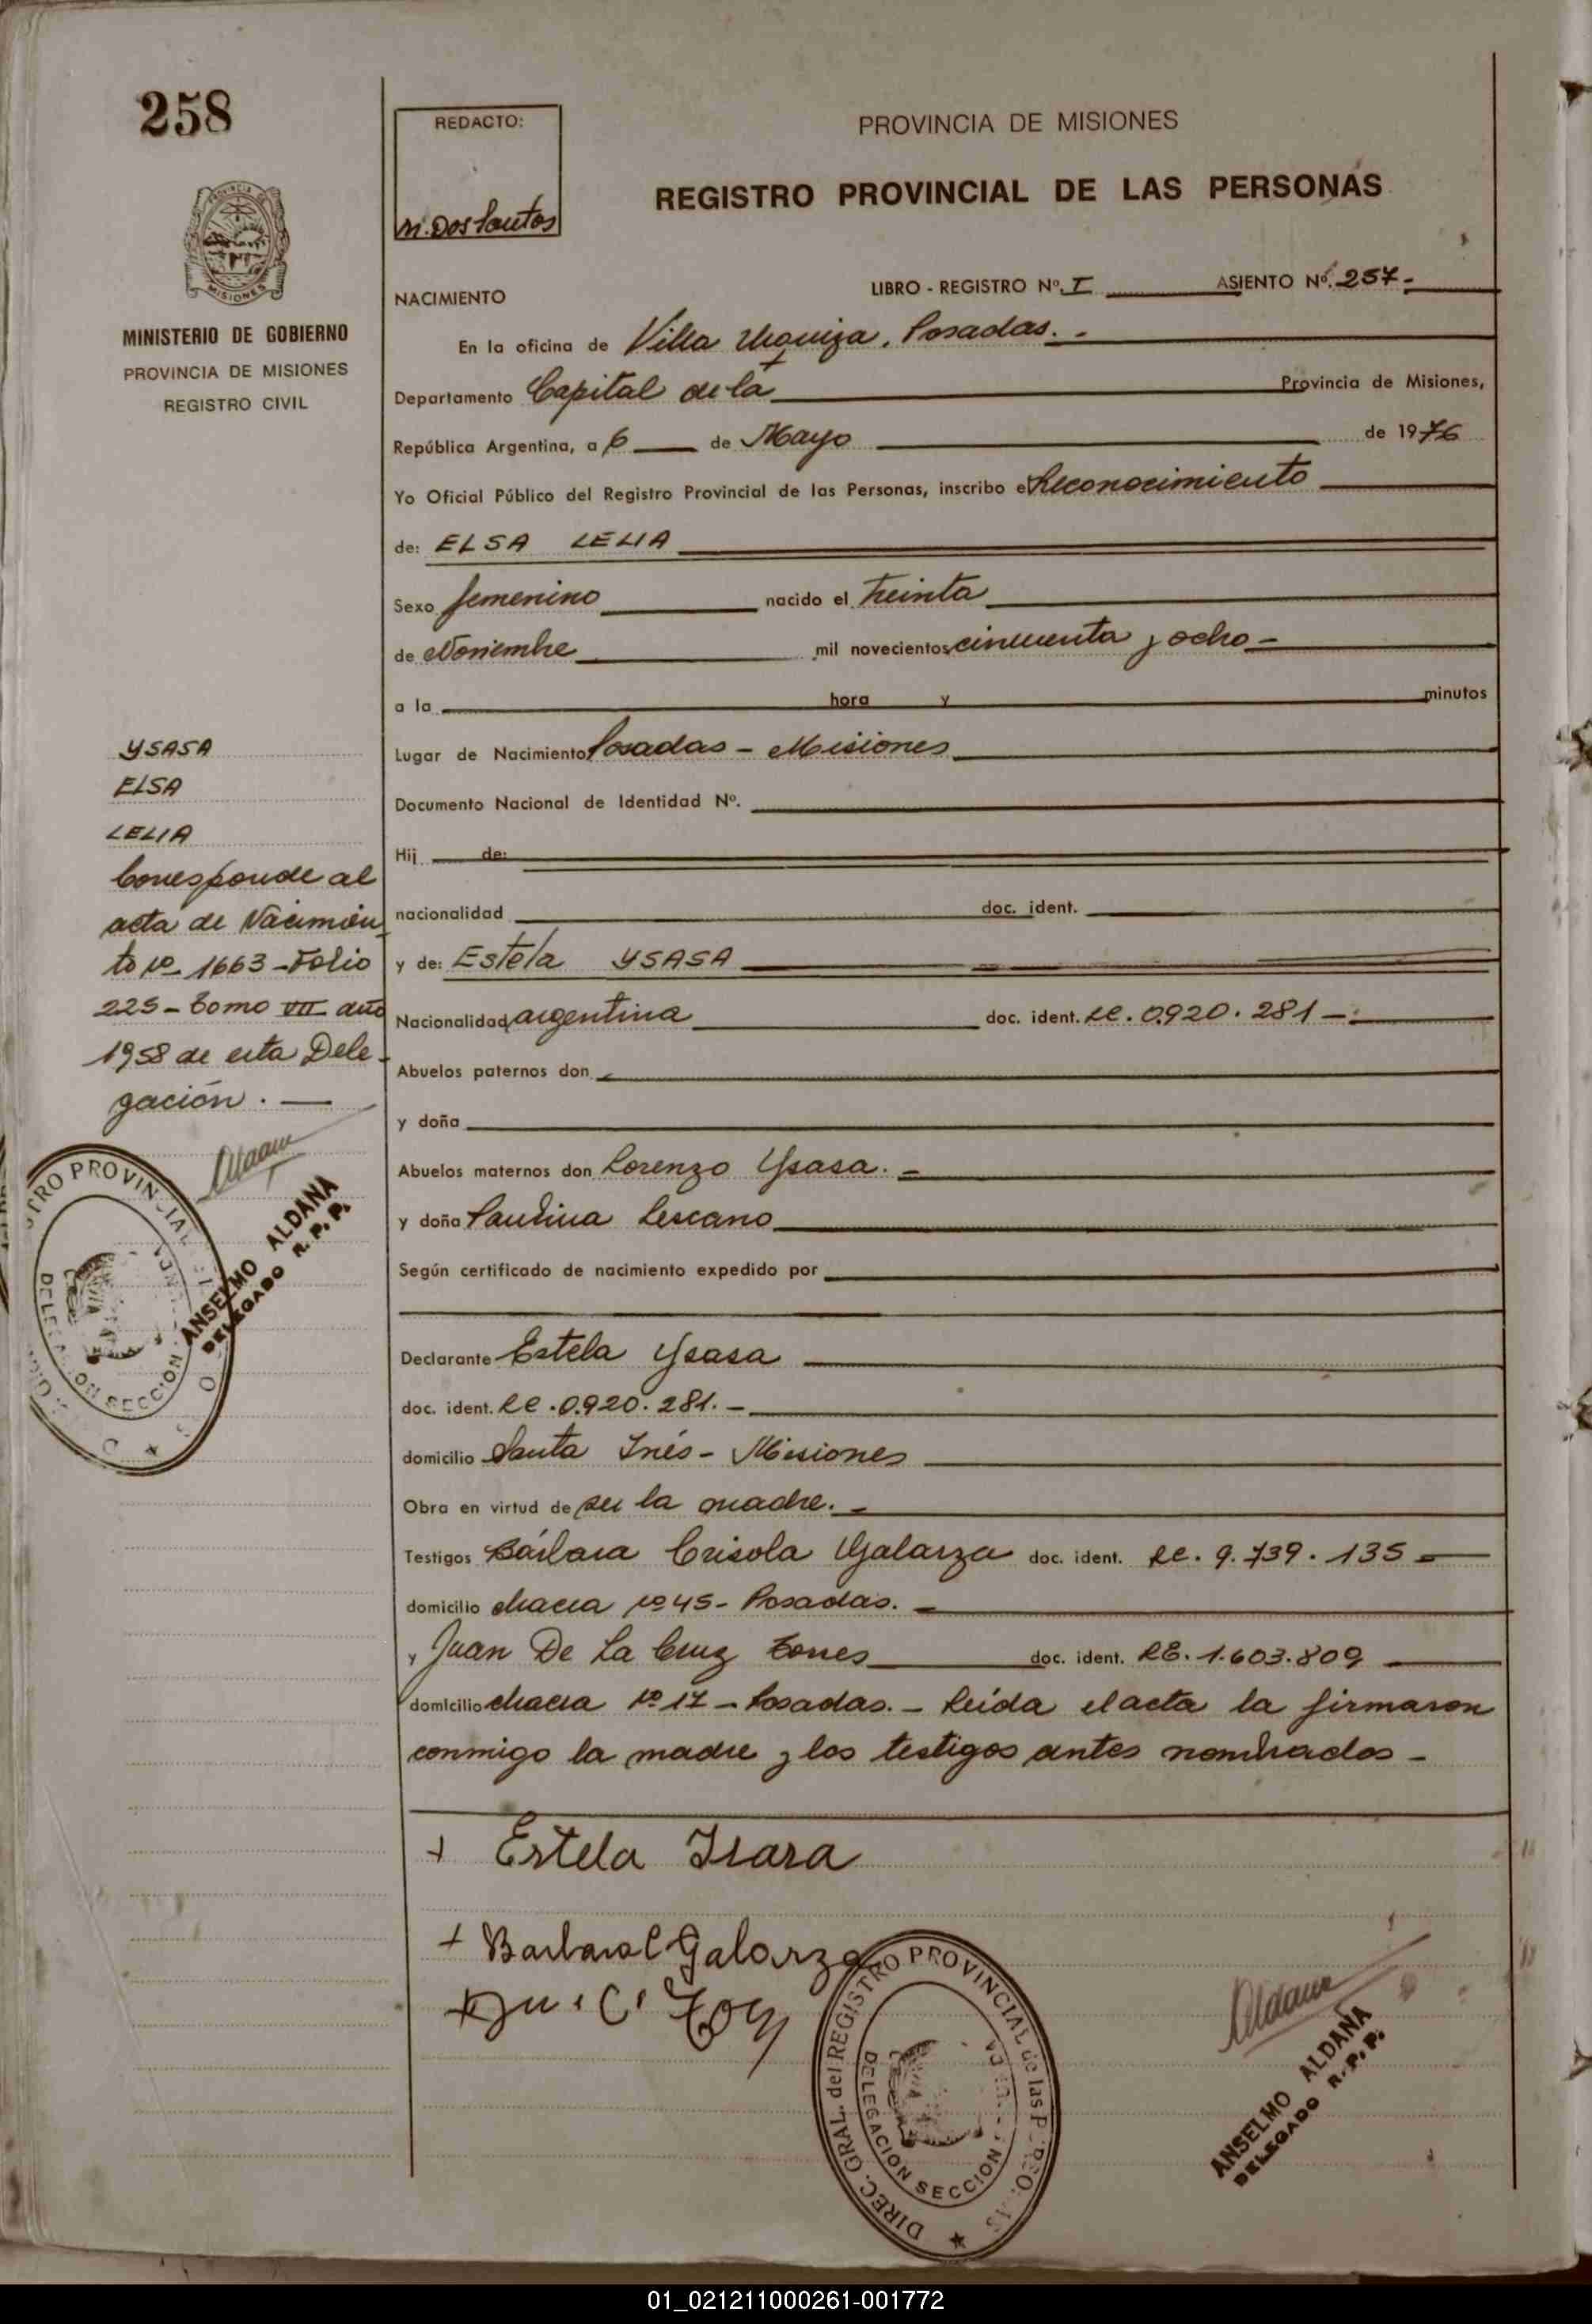 258
REDACTO:
M. Dos Santos
PROVINCIA DE MISIONES
REGISTRO PROVINCIAL DE LAS PERSONAS
PROVINCIA DE
MISIONES
MINISTERIO DE GOBIERNO
PROVINCIA DE MISIONES
REGISTRO CIVIL
NACIMIENTO
LIBRO - REGISTRO Nº. I ASIENTO Nº. 257-
En la oficina de Villa Urquiza, Posadas. -
Departamento Capital de la Provincia de Misiones,
República Argentina, a 6 de Mayo de 1976
Yo Oficial Público del Registro Provincial de las Personas, inscribo el Reconocimiento
de: ELSA LELIA
Sexo femenino nacido el treinta
de Noviembre mil novecientos cincuenta y ocho -
a la hora y minutos
Lugar de Nacimiento Posadas - Misiones
Documento Nacional de Identidad Nº.
Hij de:
nacionalidad doc. ident.
y de: Estela YSASA
Nacionalidad argentina doc. ident. LC. 0.920. 281 -
Abuelos paternos don
y doña
Abuelos maternos don Lorenzo Ysasa. -
y doña Paulina Lescano
Según certificado de nacimiento expedido por
Declarante Estela Ysasa
doc. ident. LC. 0.920. 281. -
domicilio Santa Inés - Misiones
Obra en virtud de ser la madre. -
Testigos Bárbara Crisola Galarza doc. ident. LC. 9. 739. 135 -
domicilio chacra Nº 45 - Posadas. -
y Juan De La Cruz Torres doc. ident. LE. 1.603.809
domicilio chacra Nº 17 - Posadas. - Leída el acta la firmaron
conmigo la madre y los testigos antes nombrados -
YSASA
ELSA
LELIA
Corresponde al
acta de Nacimien
to Nº 1663 - Folio
225 - Tomo VII año
1958 de esta Dele -
gación. -
Aldana
ANSELMO ALDANA
DELEGADO R. P. P.
+ Estela Isasa
+ Barbara C Galarza
DIREC. GRAL. del REGISTRO PROVINCIAL de las PERSONAS
DELEGACION SECCION
Aldana
ANSELMO ALDANA
DELEGADO R. P. P.
01_021211000261-001772